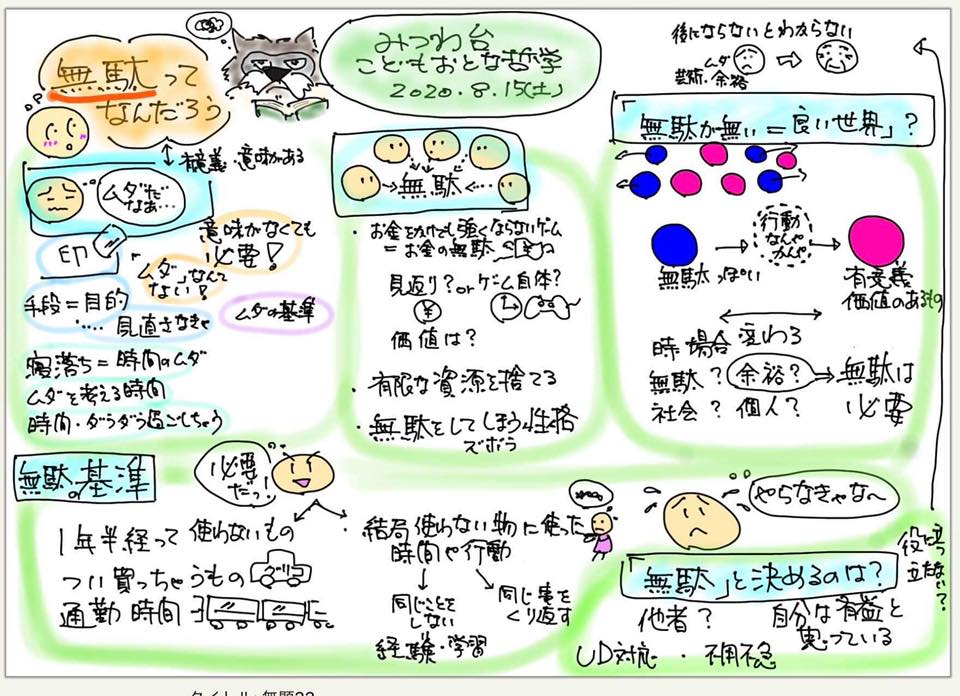 無駄って
なんだろう
みつわ台
こどもおとな哲学
2020.8.15(土)
後にならないとわからない
ムダ
芸術・余裕
「無駄が無い=良い世界」?
有意義・意味がある
ムダだ
なぁ…
印
意味がなくても
必要!
ムダ、なんて
ない!
手段=目的
…… 見直さなきゃ
ムダの基準
寝落ち=時間のムダ
ムダを考える時間
時間・ダラダラ過ごしちゃう
無駄
・お金をかけても強くならないゲーム
=お金の無駄
見返り?orゲーム自体?
¥
価値は?
・有限な資源を捨てる
・無駄をしてしまう性格
ズボラ
行動
なんや
かんや
無駄っぽい
有意義
価値のあるもの
時・場合 変わる
無駄?余裕?→無駄は
社会?個人? 必要
無駄の基準
必要
だっ!
1年半経って使わないもの
つい買っちゃうもの
通勤時間
・結局使わない物に使った
時間や行動
同じことを
しない
同じ事を
くり返す
経験・学習
やらなきゃな〜
「無駄」と決めるのは?
役に立つ
立たない?
他者? 自分な有益と
思っている
UD対応・不用不急